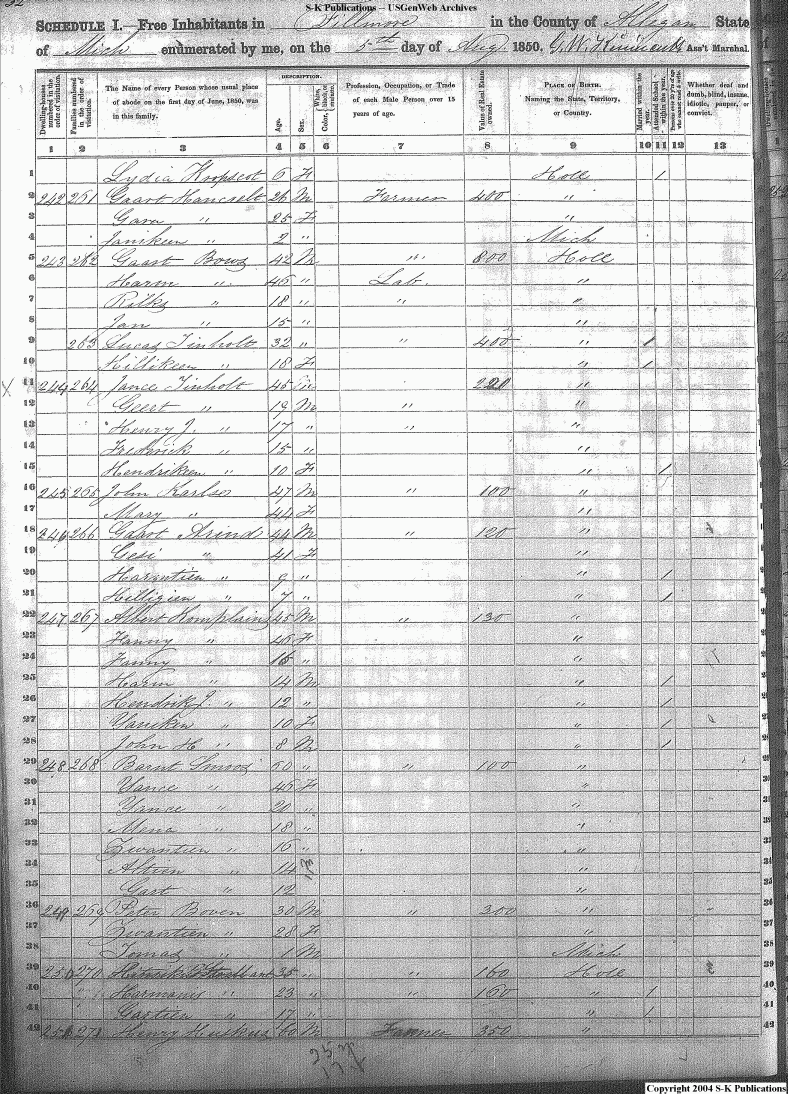 52
S-K Publications – USGenWeb Archives
SCHEDULE I.—Free Inhabitants in Fillmore in the County of Allegan State
of Mich enumerated by me, on the 5th day of Aug. 1850. G. W. Ass't Marshal.
Dwelling-houses numbered in the order of visitation.
Families numbered in the order of visitation.
The Name of every Person whose usual place of abode on the first day of June, 1850, was in this family.
DESCRIPTION.
Age.
Sex.
White, black, or mulatto.
Color,
Profession, Occupation, or Trade of each Male Person over 15 years of age.
Value of Real Estate owned.
PLACE OF BIRTH.
Naming the State, Territory, or Country.
Married within the year.
Attended School within the year.
Persons over 20 y'rs of age who cannot read & write.
Whether deaf and dumb, blind, insane, idiotic, pauper, or convict.
1 2 3 4 5 6 7 8 9 10 11 12 13
1 Lydia 6 F Holl 1
2 242 261 Gaart 26 M Farmer 400 "
3 Gara " 25 F "
4 Janikeen " 2 " Mich
5 243 262 Gaart Bows 42 M " 800 Holl
6 Harm " 46 " Lab. "
7 Rilks " 18 " " "
8 Jan " 15 " "
9 263 Lucas Tinholt 32 " " 400 " 1
10 Hillikeen " 18 F " 1
11 244 264 Jance Tinholt 45 220 "
12 Geert " 19 M " "
13 Henry J. " 17 " " "
14 Frederick " 15 " "
15 Hendrikeen " 10 F " 1
16 245 265 John Karlse 47 M " 100 "
17 Mary " 44 F "
18 246 266 Garot Arind 44 M " 120 "
19 Gesi " 41 F "
20 Harmtien " 9 " " 1
21 Hilligien " 7 " " 1
22 247 267 Albert Komplains 45 M " 130 "
23 Fanny " 46 F "
24 Fanny " 16 " "
25 Harm " 14 M " 1
26 Hendrik J. " 12 " " 1
27 Yaniken " 10 F " 1
28 John H " 8 M " 1
29 248 268 Barnt 50 " " 100 "
30 Yance " 46 F "
31 Yance " 20 " "
32 Mena " 18 " "
33 Zwantien " 16 " "
34 Altien " 14 "
35 Gart " 12 "
36 249 269 Peter Boven 30 M " 300 "
37 Zwantien " 28 F "
38 Tomas " 1 M Mich
39 250 270 35 " " 160 Holl
40 " " Harmanis " 23 " " 160 " 1
41 Gastien " 17 " " 1
42 251 271 Henry 60 M Farmer 350 "
Copyright 2004 S-K Publications